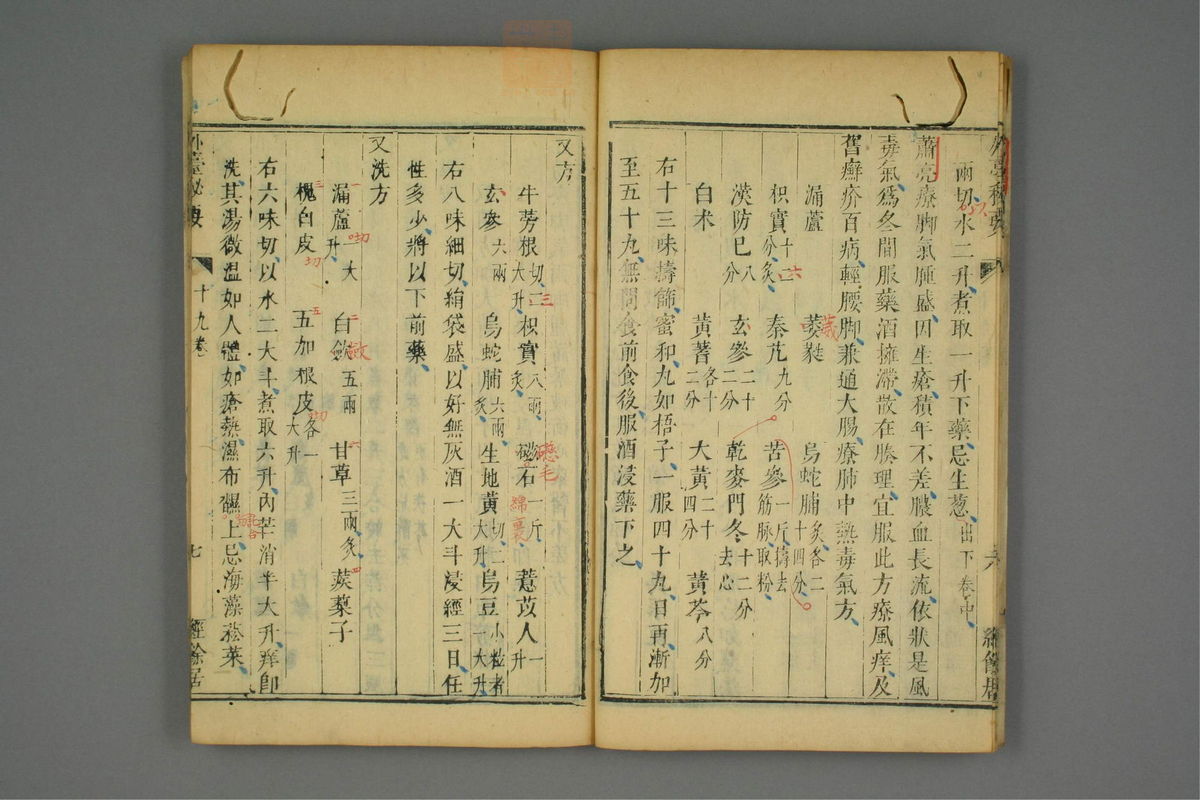 外臺秘要
兩切水二升煮取一升下藥忌生葱出下卷中
蕭亮療脚氣腫盛因生瘡積年不差膿血長流依狀是風
毒氣爲冬間服藥酒擁滯散在腠理宜服此方療風痒及
舊癬疥百病輕腰脚兼通大腸療肺中熱毒氣方
漏蘆 葳蕤 烏蛇脯炙各二十四分
枳實十六分炙 秦艽九分 苦參一斤擣去筋脉取粉
漢防巳八分 玄參二十二分 乾麥門冬十二分去心
白术 黃蓍各十二分 大黃二十四分 黃芩八分
右十三味擣篩蜜和丸如梧子一服四十九日再漸加
至五十九無問食前食後服酒浸藥下之
又方
牛蒡根切二大升 枳實八兩炙 磁石一斤 薏苡人一升
玄參六兩 烏蛇脯六兩炙 生地黃切二大升 烏豆小粒者一大升
右八味細切絹袋盛以好無灰酒一大斗浸經三日任
性多少將以下前藥
又洗方
漏蘆一大升 白斂五兩 甘草三兩炙 蒺蔾子
槐白皮 五加根皮各一大升
右六味切以水二大斗煮取六升內芒消半大升痒卽
洗其湯微溫如人體如瘡熱濕布搨上忌海藻菘菜
外臺秘要 十九卷 七 經餘居